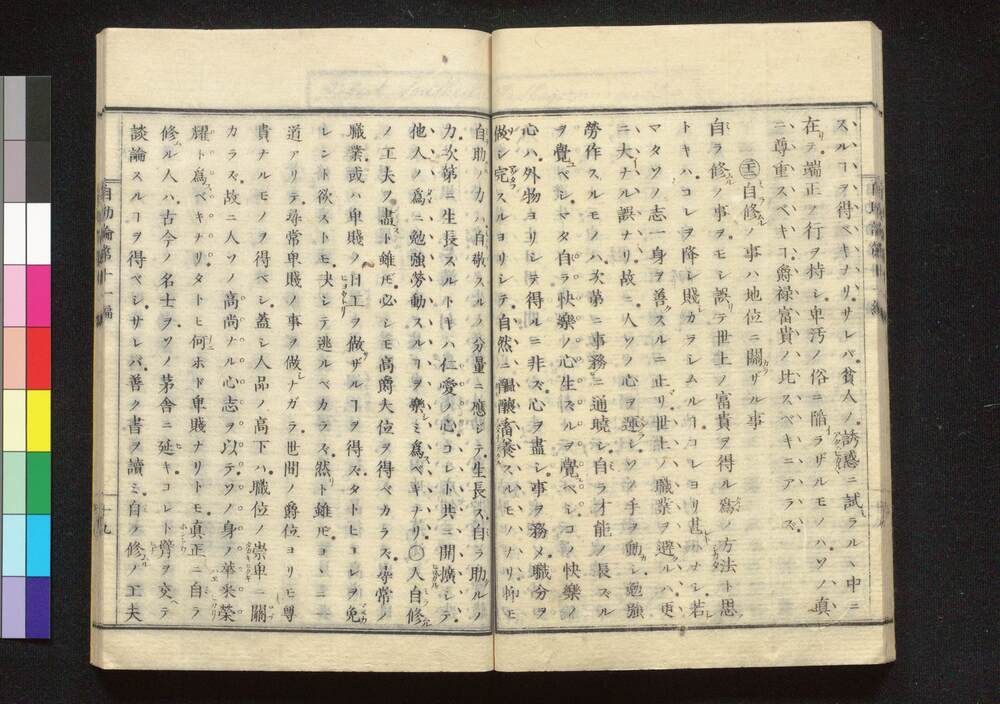 スルヿヲ得ベキナリ。サレバ貧人ノ誘惑ニ試ラルヽ中ニ
在テ端正ノ行ヲ持シ卑汚ノ俗ニ陥ラザルモノハソノ真
ニ尊重スベキヿ爵禄富貴ノ比スベキニアラズ
自修ノ事ハ地位ニ關ザル事
自ラ修ルノ事ヲモシ誤テ世上ノ富貴ヲ得ル為ノ方法ト思
トキハコレヲ降シ賤カラシムルヿコレヨリ甚ハナシ若
マタソノ志一身ヲ善スルニ止リ世上ノ職業ヲ選ハ更
ニ大ナル誤ナリ故ニ人ソノ心ヲ運シソノ手ヲ動シ勉強
勞作スルモノハ次第ニ事務ニ通曉シ自ラ才能ノ長ズル
ヲ覺ベシマタ自ラ快樂ノ心生ズルヲ覺ベシコノ快樂ノ
心ハ外物ヨリシテ得ルニ非ズ心ヲ盡シ事ヲ務メ職分ヲ
做シ完スルヨリシテ自然ニ醞釀畜養スルモノナリ抑モ
自助ノ力ハ自敬スルノ分量ニ應シテ生長ス自ラ助ルノ
力次第ニ生長スルトキハ仁愛ノ心コレト共ニ開擴シテ
他人ノ為ニ勉強勞動スルヿヲ樂ミ為ベキナリ○人自修
ノ工夫ヲ盡ト雖𪜈必シモ高爵大位ヲ得ベカラズ尋常ノ
職業或ハ卑賤ノ日工ヲ做ザルヿヲ得ズタトヒコレヲ免
レント欲ストモ決シテ逃ルベカラズ然ト雖𪜈コヽニ一
道アリテ尋常卑賤ノ事ヲ做ナガラ世間ノ爵位ヨリモ尊
貴ナルモノヲ得ベシ蓋シ人品ノ高下ハ職位ノ崇卑ニ關
カラズ故ニ人ソノ高尚ナル心志ヲ以テソノ身ノ華釆榮
耀ト為ベキナリタトヒ何ホド卑賤ナリトモ真正ニ自ラ
修ル人ハ古今ノ名士ヲソノ茅舎ニ延キコレト臂ヲ交テ
談論スルヿヲ得ベシサレバ善ク書ヲ讀ミ自ラ修ノ工夫
自助論第十一編
十九